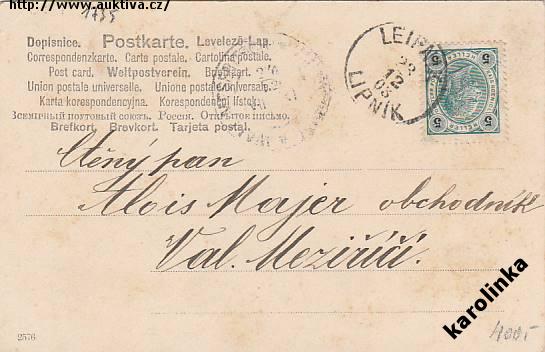 http://www.auktiva.cz/
1735
Dopisnice. Postkarte. Levelező-Lap.
Correspondenzkarte. Carte postale. Cartolina postale.
Post card. Weltpostverein. Brevkort.
Union postale universelle. Unione postale universale.
Karta korespondencyjna. Korespondenční lístek.
Всемірный почтовый союзъ. Россія. Открытое письмо.
Brefkort. Brevkort. Tarjeta postal.
LEIPNIK
22
12
03
LIPNÍK
5 HELLER 5
5 HELLER 5
Ctěný pan
Alois Majer obchodník
Val. Meziříčí.
2576
400.-
karolinka